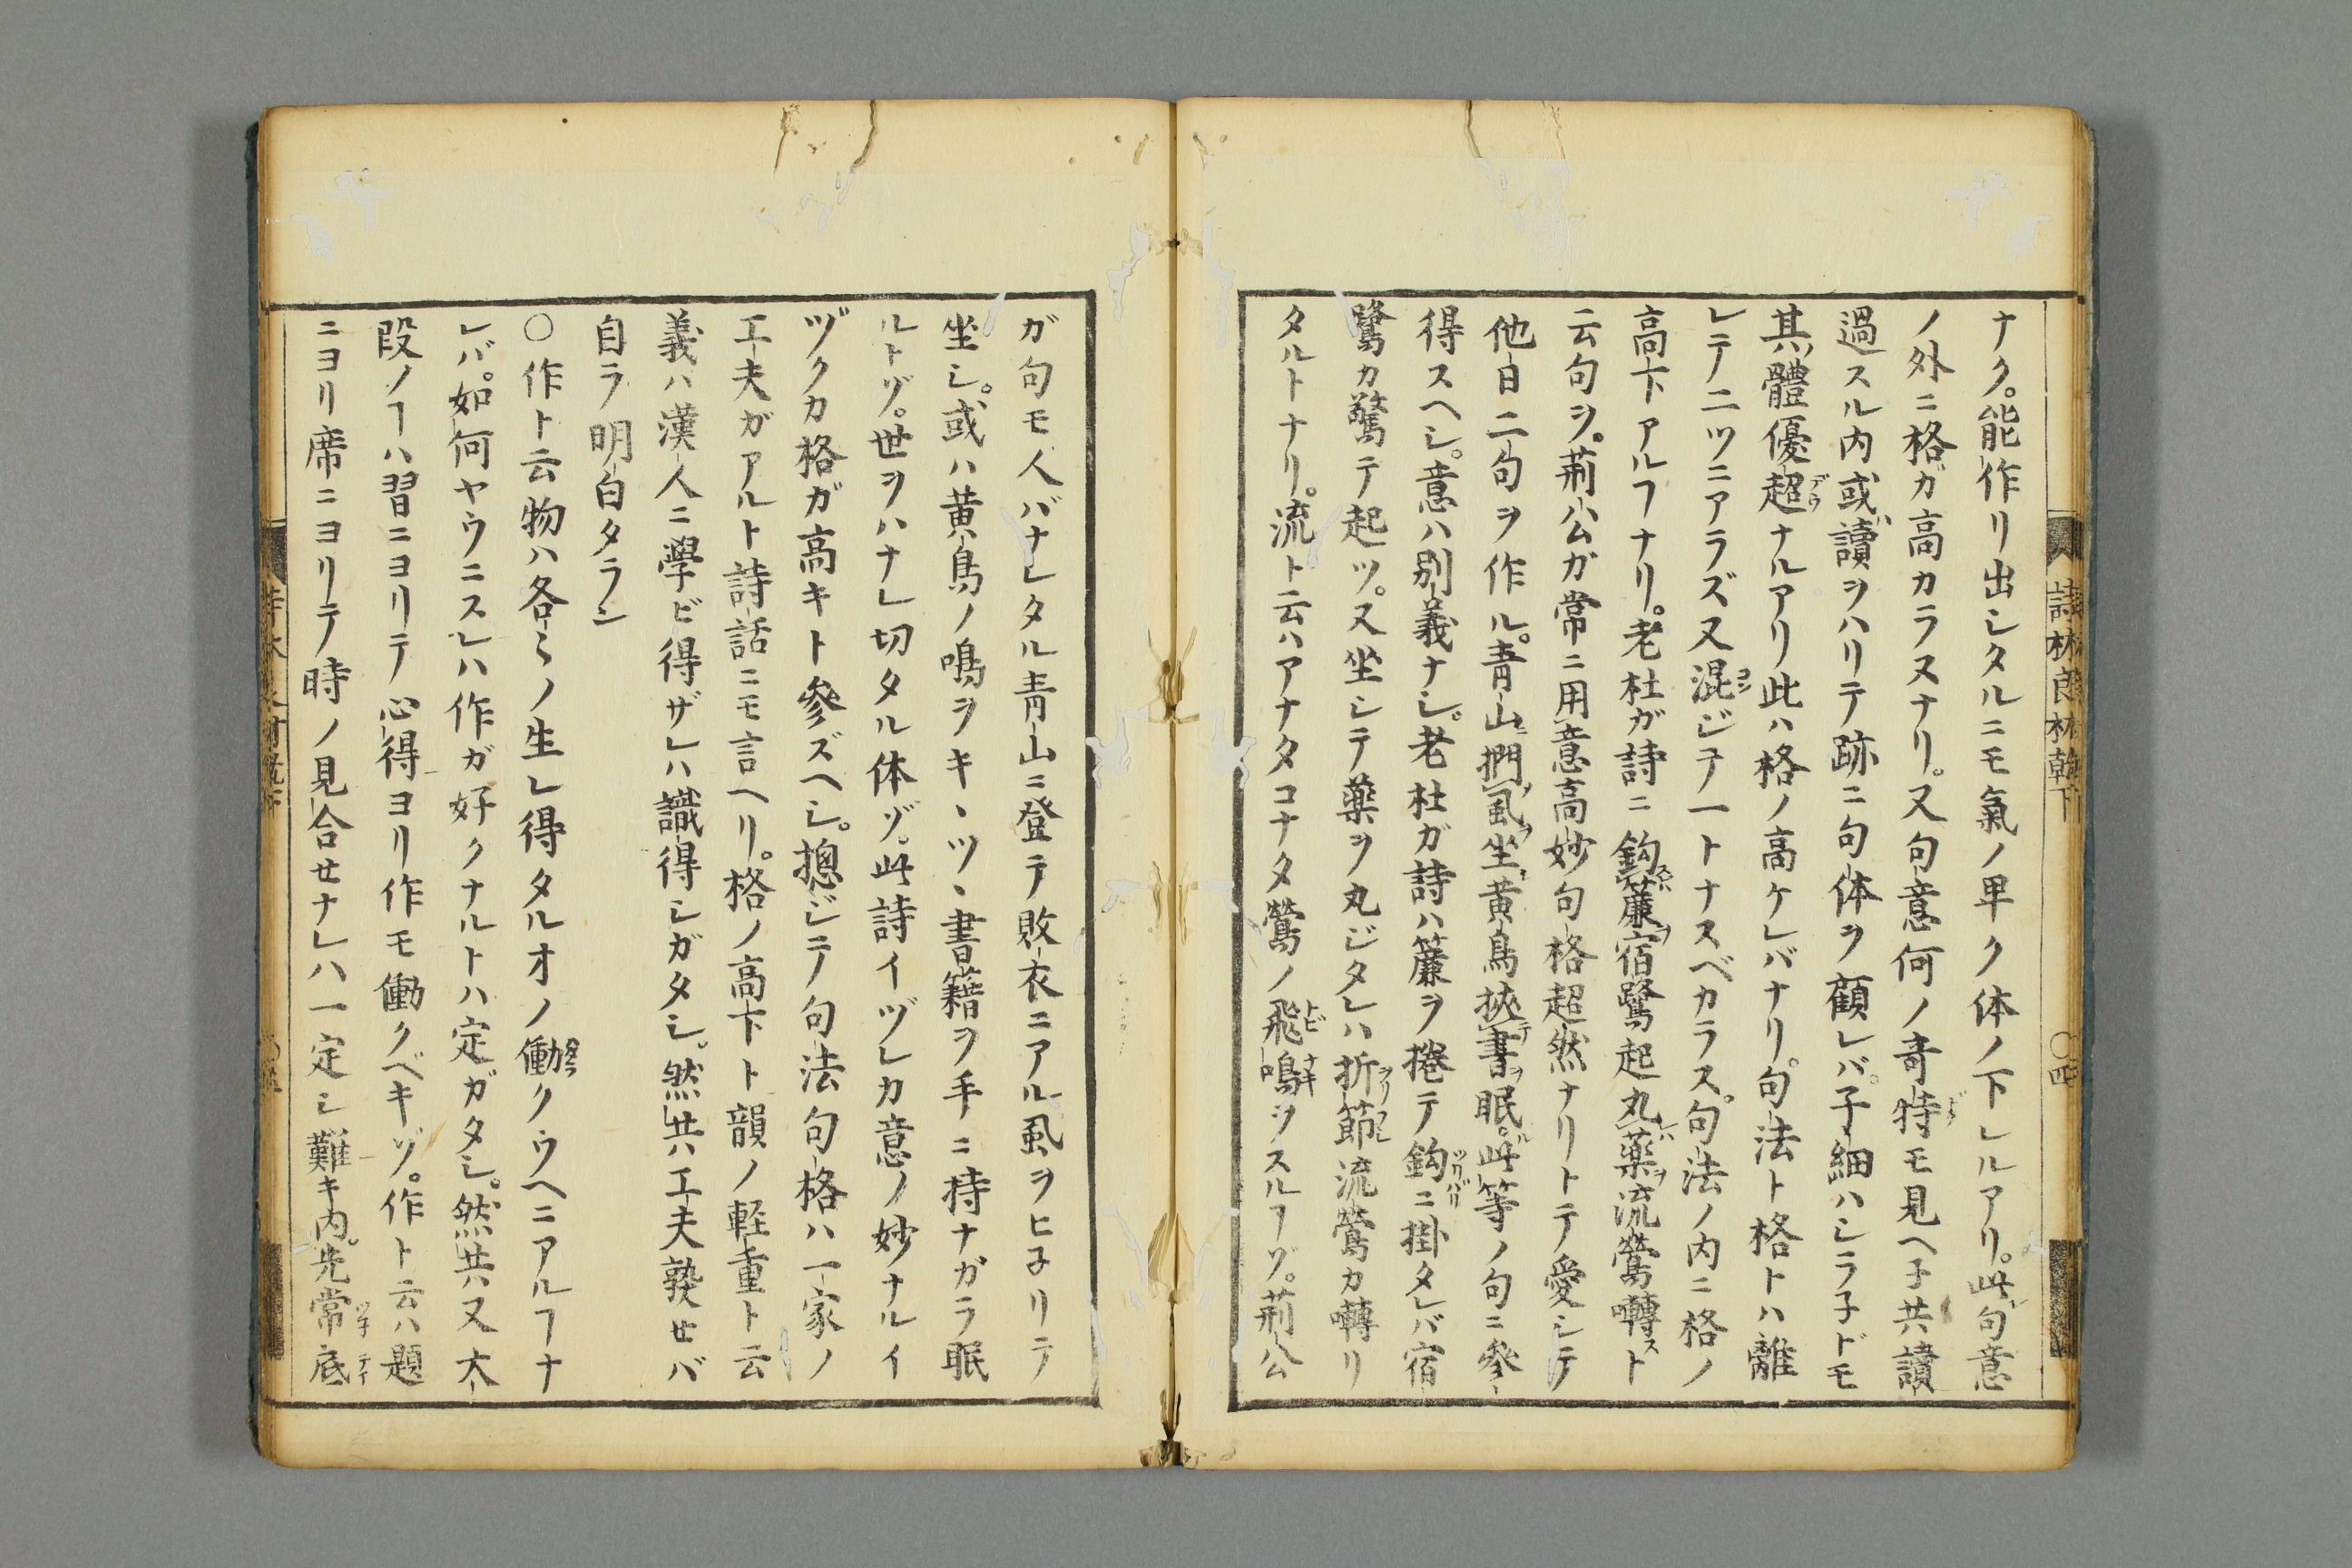 詩林良材幹下
〇四
ナク。能作リ出シタルニモ氣ノ卑ク体ノ下レルアリ。此句意
ノ外ニ格ガ高カラヌナリ。又句意何ノ奇特モ見ヘ子共讀
過スル内或讀ヲハリテ跡ニ句体ヲ顧レバ。子細ハシラ子ドモ
其體優超ナルアリ此ハ格ノ高ケレバナリ。句法ト格トハ離
レテ二ツニアラズ又混ジテ一トナスベカラス。句法ノ内ニ格ノ
高下アルヿナリ。老杜ガ詩ニ鈎簾宿鷺起丸藥流鶯囀ト
云句ヲ。荊公ガ常ニ用意高妙句格超然ナリトテ愛シテ
他日二句ヲ作ル。青山捫虱坐黄鳥挾書眠。此等ノ句ニ參
得スヘシ。意ハ別義ナシ。老杜ガ詩ハ簾ヲ捲テ鈎ニ掛タレバ宿
鷺カ驚テ起ツ。又坐シテ藥ヲ丸ジタレハ折節流鶯カ囀リ
タルトナリ。流ト云ハアナタコナタ鶯ノ飛鳴ヲスルヿゾ。荊公
ガ句モ人バナレタル青山ニ登テ敗衣ニアル虱ヲヒ子リテ
坐シ。或ハ黄鳥ノ鳴ヲキヽツヽ書籍ヲ手ニ持ナガラ眠
ルトゾ。世ヲハナレ切タル体ゾ。此詩イヅレカ意ノ妙ナルイ
ヅクカ格ガ高キト參ズヘシ。摠ジテ句法句格ハ一家ノ
工夫ガアルト詩話ニモ言ヘリ。格ノ高下ト韻ノ軽重ト云
義ハ漢人ニ學ビ得ザレハ識得シガタシ。然共工夫熟せバ
自ラ明白タラン
〇作ト云物ハ各〻ノ生レ得タルオノ働クウヘニアルヿナ
レバ。如何ヤウニスレハ作ガ好クナルトハ定ガタシ。然共又大
段ノヿハ習ニヨリテ心得ヨリ作モ働クベキゾ。作ト云ハ題
ニヨリ席ニヨリテ時ノ見合せナレハ一定シ難キ内。先常底